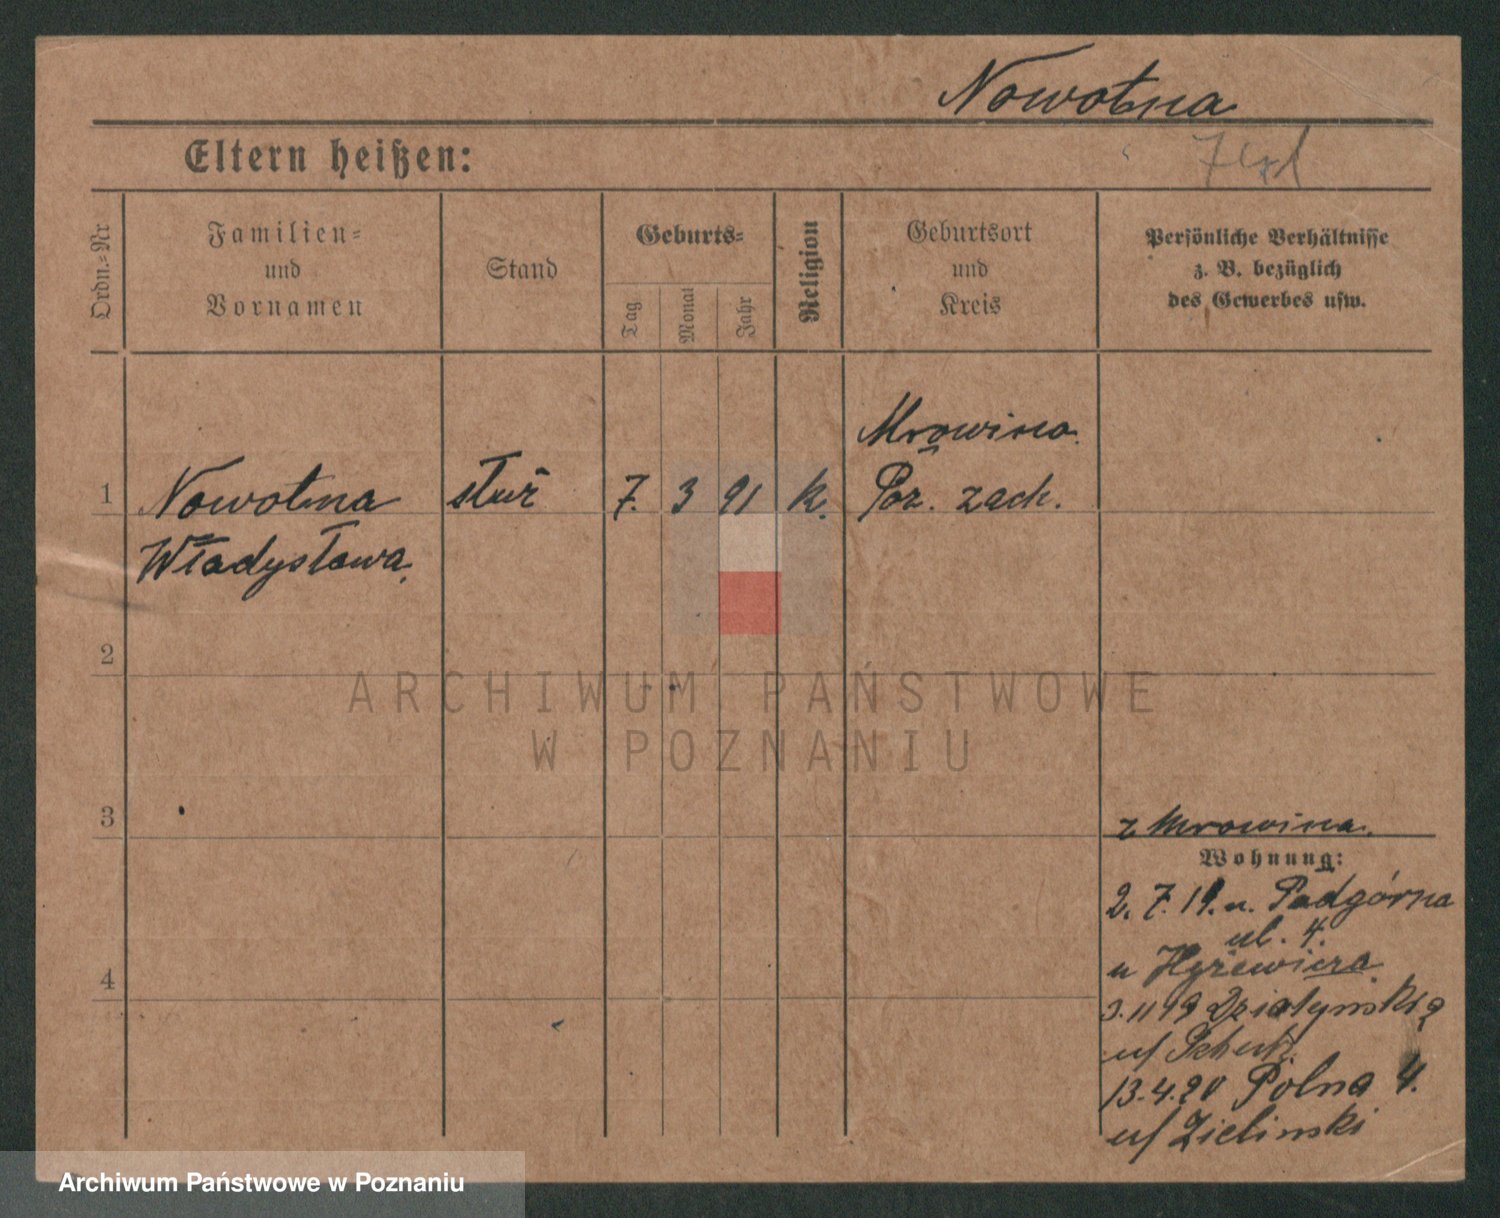 Nowotna
Eltern heißen:
Ordn.=Nr
Familien=
und
Vornamen
Stand
Geburts=
Tag
Monat
Jahr
Religion
Geburtsort
und
Kreis
Persönliche Verhältnisse
z. B. bezüglich
des Gewerbes usw.
Mrowino
1 Nowotna służ 7. 3 91 k. Poz. zach.
Władysława.
2
ARCHIWUM PAŃSTWOWE
W POZNANIU
3
z Mrowina.
Wohnung:
2. 7. 19. u. Podgórna
ul. 4.
u
4
3. 11 19 Działyńskią
u/
13.4.20 Polna 4.
u/ Zieliński
Archiwum Państwowe w Poznaniu